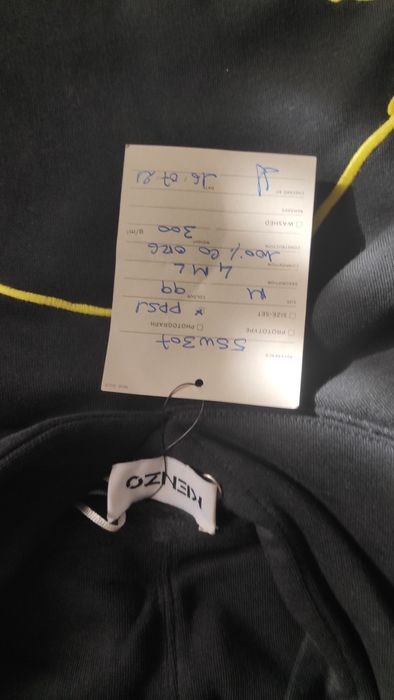 REFERENCE
5SW307
☐ PROTOTYPE ☐ PHOTOGRAPH
☐ SIZE-SET x PPS1
SIZE COLOUR
M 99
DESCRIPTION
4 ML
COMPOSITION
100% CO ORG
CONSTRUCTION WEIGHT
300 g/m²
☐ WASHED
REMARKS
CHECKED BY DATE
26.07.21
KENZO